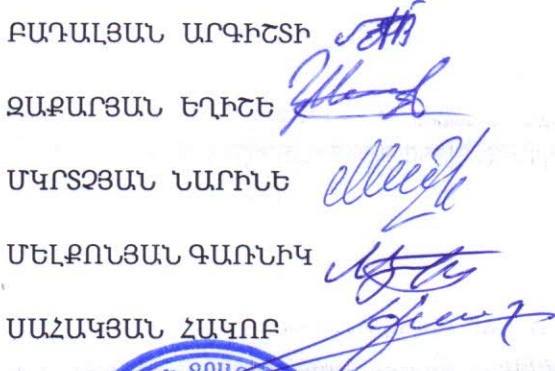 ԲԱԴԱԼՅԱՆ ԱՐԳԻՇՏԻ
ԶԱՔԱՐՅԱՆ ԵՂԻՇԵ
ՄԿՐՏՉՅԱՆ ՆԱՐԻՆԵ
ՄԵԼՔՈՆՅԱՆ ԳԱՌՆԻԿ
ՍԱՀԱԿՅԱՆ ՀԱԿՈԲ